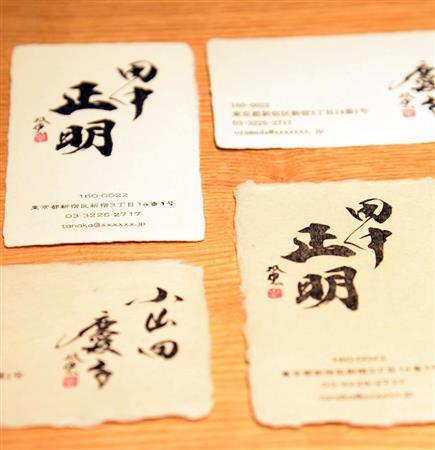 田中
正明
160-0022
東京都新宿区新宿3丁目14番1号
03-3225-2717
tanaka@xxxxxx.jp
慶
160-0022
東京都新宿区新宿3丁目14番1号
03-3225-2717
oyamada@xxxxxx.jp
小山田
慶
1号
田中
正明
160-0022
東京都新宿区新宿3丁目14番1
03-3225-2717
tanaka@xxxxxx.jp